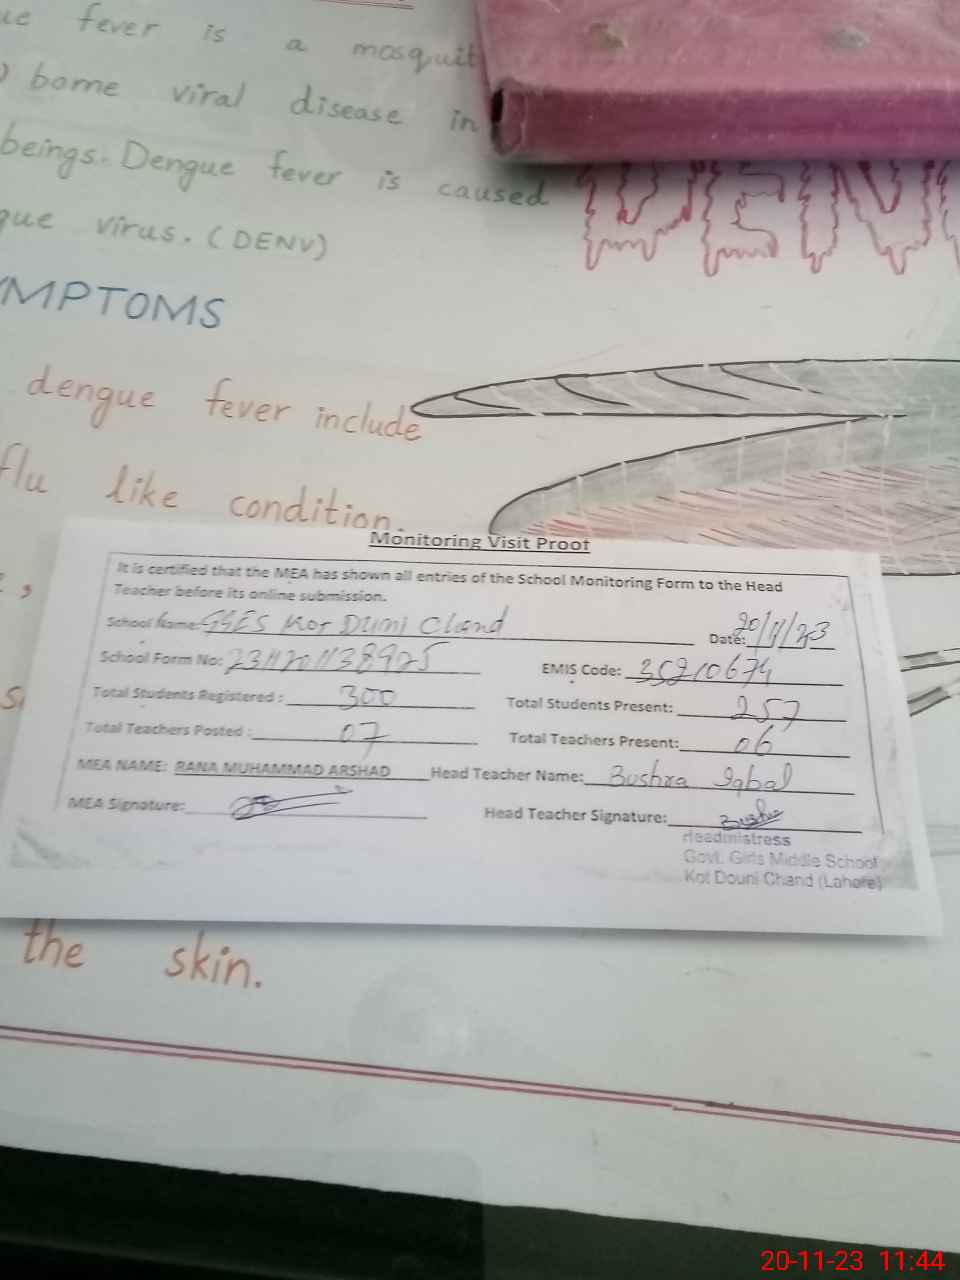 ue fever is a mosquit
borne viral disease in
beings. Dengue fever is caused
gue virus. (DENV)
YMPTOMS
dengue fever include
flu like condition.
DEN
Monitoring Visit Proof
It is certified that the MEA has shown all entries of the School Monitoring Form to the Head
Teacher before its online submission.
School Name: GGES Kot Duni Chand Date: 20/11/23
School Form No: EMIS Code:
Total Students Registered : 300 Total Students Present: 257
Total Teachers Posted : 07 Total Teachers Present: 06
MEA NAME: RANA MUHAMMAD ARSHAD Head Teacher Name: Bushra Iqbal
MEA Signature: Head Teacher Signature: Bushra
Headmistress
Govt. Girls Middle School
Kot Douni Chand (Lahore)
the skin.
20-11-23 11:44